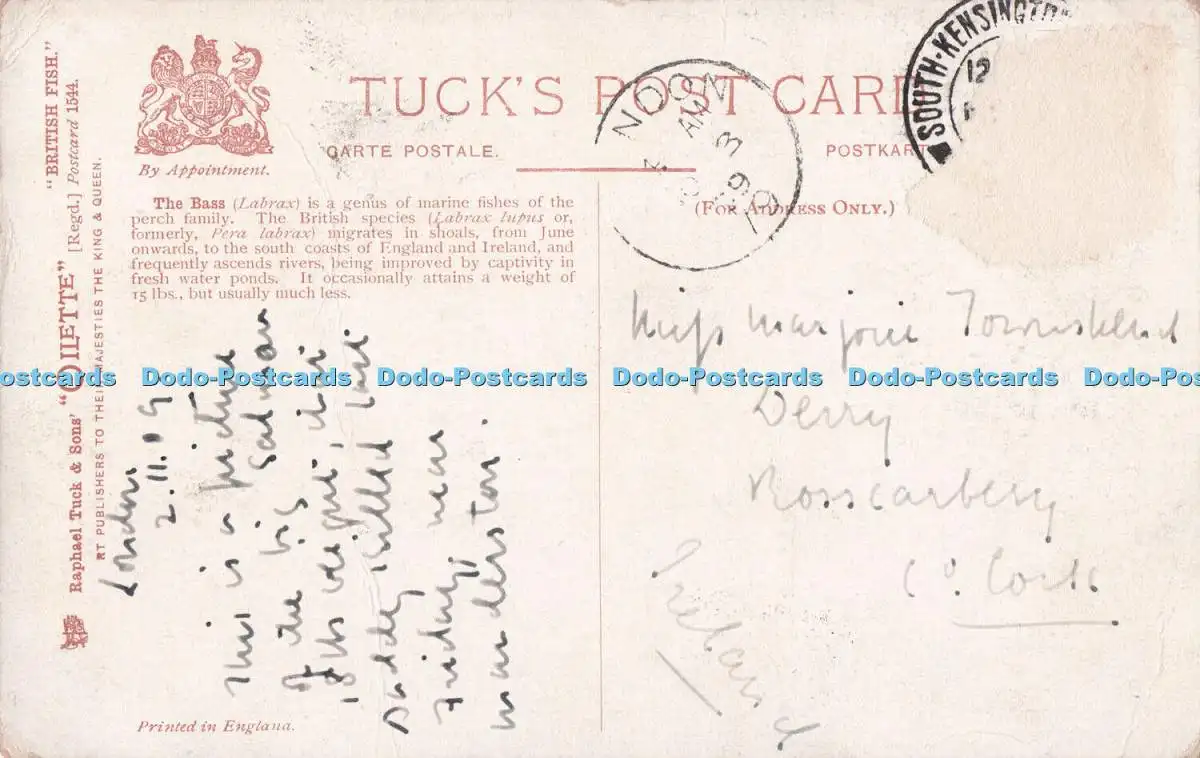 TUCK'S POST CARD
CARTE POSTALE.
POSTKART
By Appointment.
(FOR ADDRESS ONLY.)
The Bass (Labrax) is a genus of marine fishes of the
perch family. The British species (Labrax lupus or,
formerly, Pera labrax) migrates in shoals, from June
onwards, to the south coasts of England and Ireland, and
frequently ascends rivers, being improved by captivity in
fresh water ponds. It occasionally attains a weight of
15 lbs., but usually much less.
Raphael Tuck & Sons' "OILETTE" [Regd.] Postcard 1544.
"BRITISH FISH."
RT PUBLISHERS TO THEIR MAJESTIES THE KING & QUEEN.
London
2.11.09
This is a picture
of the big Salmon
lbs weight,
Daddy killed last
Friday, near
Printed in England.
NOON
SOUTH·KENSINGTO
12
Miss Marjorie Townshend
Derry
Rosscarbery
Co. Cork
Ireland
Dodo-Postcards Dodo-Postcards Dodo-Postcards Dodo-Postcards Dodo-Postcards Dodo-Postcards